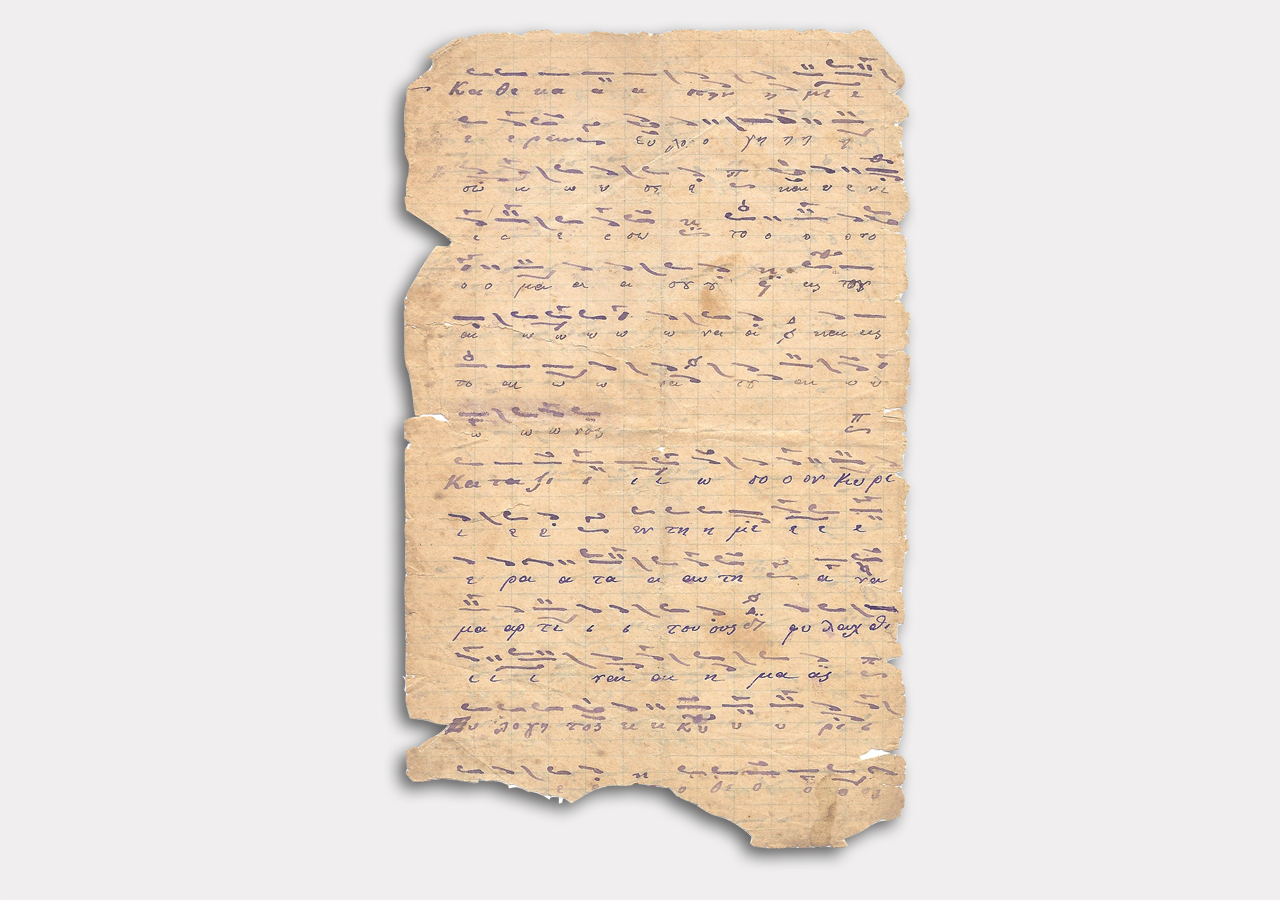 Κα θε κα α α στην η με ε
ε ε ραν ευ λο ο γη η η η
σω ω ω ω σε ε και αι νε
ε ε ε ε σω το ο ο ο ονο
ο ο μα α α σου εις τον
αι ω ω ω ω ω να α και εις
το αι ω ω να του αι ω ω
ω ω ω νος
Κα τα ξι ι ι ι ω σο ο ον Κυ ρι
ι ε ε εν τη η με ε ε ε
ε ρα α τα α αυ τη α να
μα αρ τι ι ι τους ους φυ λαχ θη
ι ι ι ναι αι η μα ας
Ευ λογη τος ει ει Κυ υ υ ρι ε
ε ε ο θε ο ο ο ο